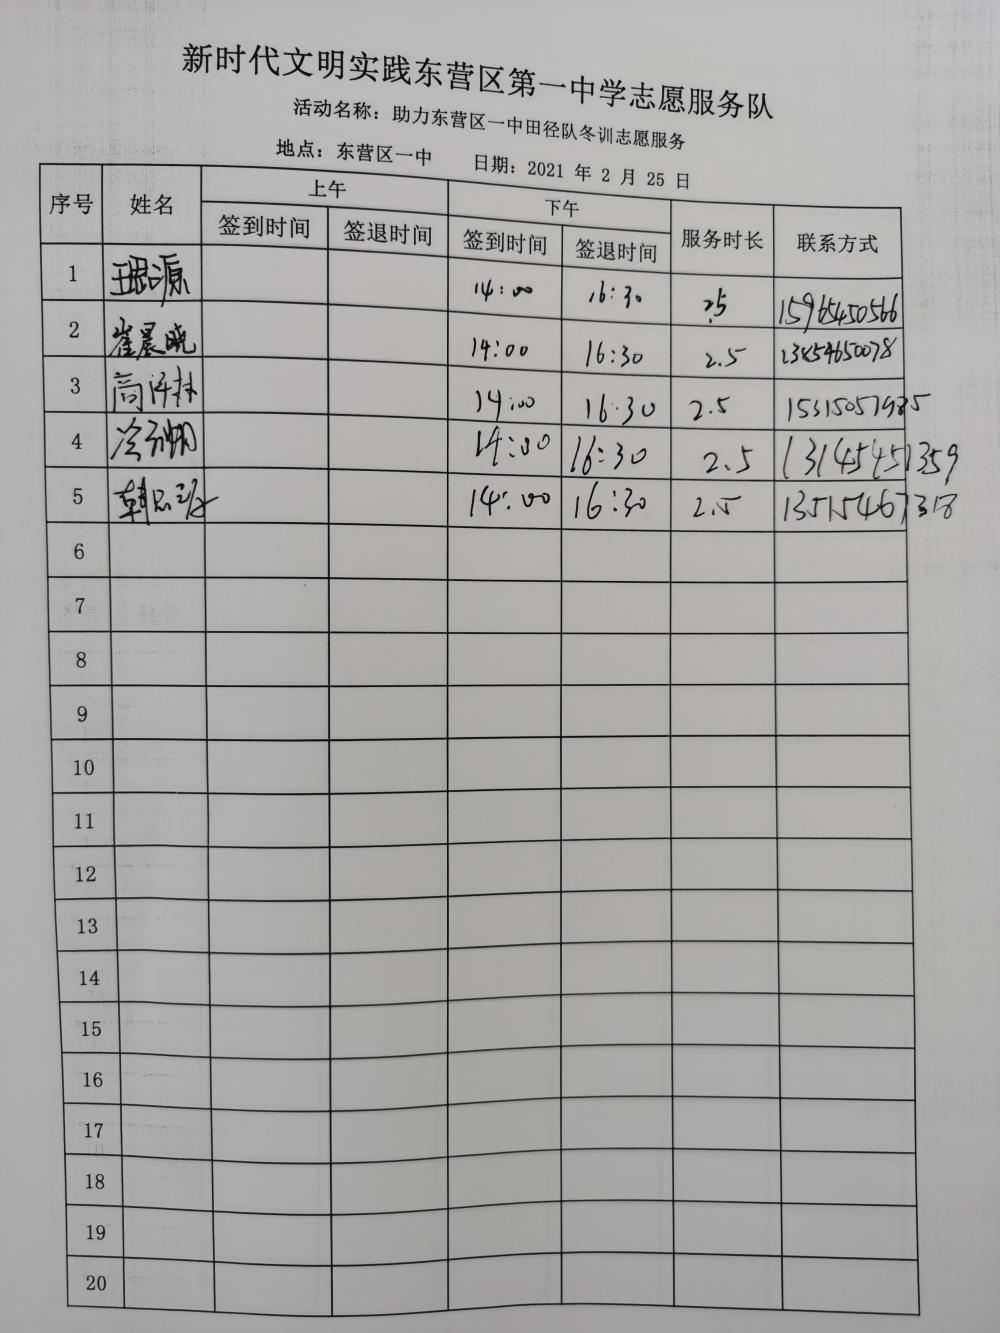 新时代文明实践东营区第一中学志愿服务队
活动名称：助力东营区一中田径队冬训志愿服务
地点：东营区一中 日期：2021 年 2 月 25 日
序号 姓名 上午 下午 服务时长 联系方式
签到时间 签退时间 签到时间 签退时间
1 14:00 16:30 2.5 15965450566
2 崔晨晓 14:00 16:30 2.5 13854650078
3 14:00 16:30 2.5
4 14:00 16:30 2.5 13145451359
5 14:00 16:30 2.5 13515467318
6
7
8
9
10
11
12
13
14
15
16
17
18
19
20